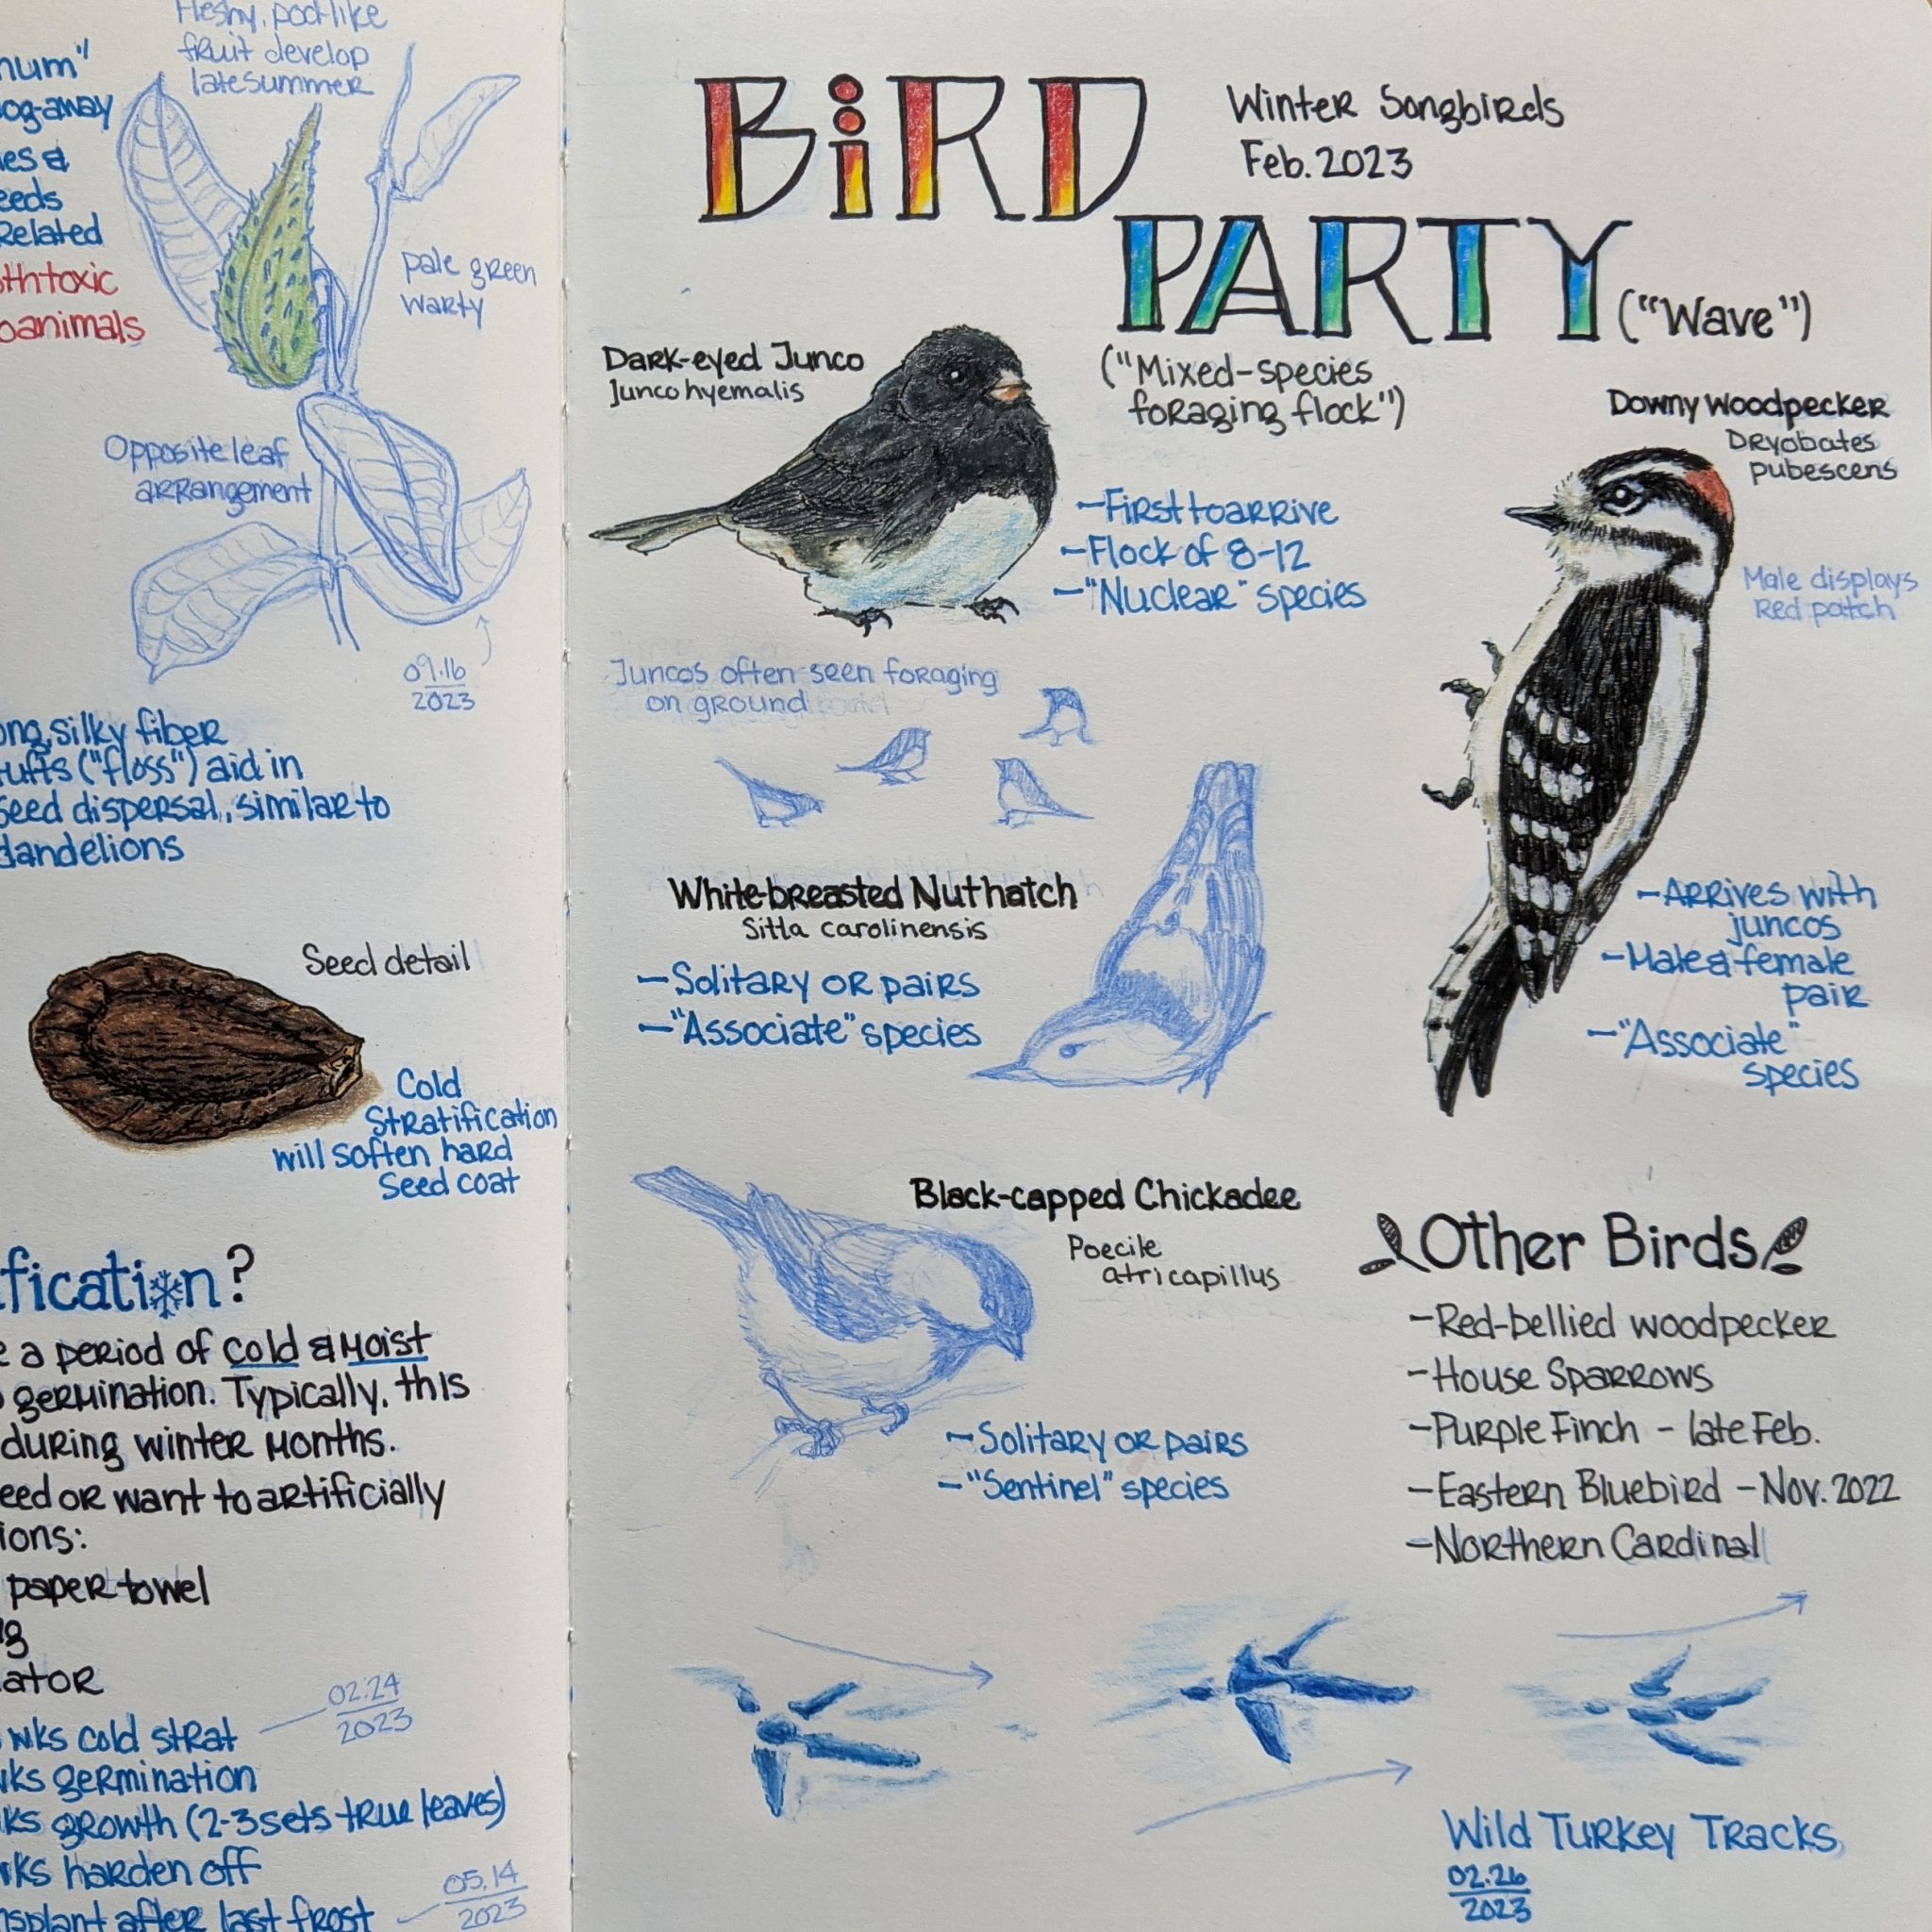 Fleshy, pod-like
fruit develop
late summer
num"
og-away
ies &
eeds
Related
oth toxic
o animals
pale green
warty
Opposite leaf
arrangement
09.16
2023
ong, silky fiber
tufts ("floss") aid in
seed dispersal, similar to
dandelions
Seed detail
Cold
Stratification
will soften hard
Seed coat
ification?
e a period of cold & moist
germination. Typically, this
during winter months.
eed or want to artificially
ions:
paper towel
ng
ator
wks cold strat
02.24
2023
wks germination
ks growth (2-3 sets true leaves)
wks harden off
nsplant after last frost
05.14
2023
BiRD
PARTY
("Wave")
Winter Songbirds
Feb. 2023
("Mixed-species
foraging flock")
Dark-eyed Junco
Junco hyemalis
- First to arrive
- Flock of 8-12
- "Nuclear" species
Juncos often seen foraging
on ground
Downy Woodpecker
Dryobates
pubescens
Male displays
Red patch
- Arrives with
juncos
- Male & female
pair
- "Associate"
species
White-breasted Nuthatch
Sitta carolinensis
- Solitary or pairs
- "Associate" species
Black-capped Chickadee
Poecile
atricapillus
- Solitary or pairs
- "Sentinel" species
Other Birds
- Red-bellied woodpecker
- House Sparrows
- Purple Finch - late Feb.
- Eastern Bluebird - Nov. 2022
- Northern Cardinal
Wild Turkey Tracks
02.26
2023